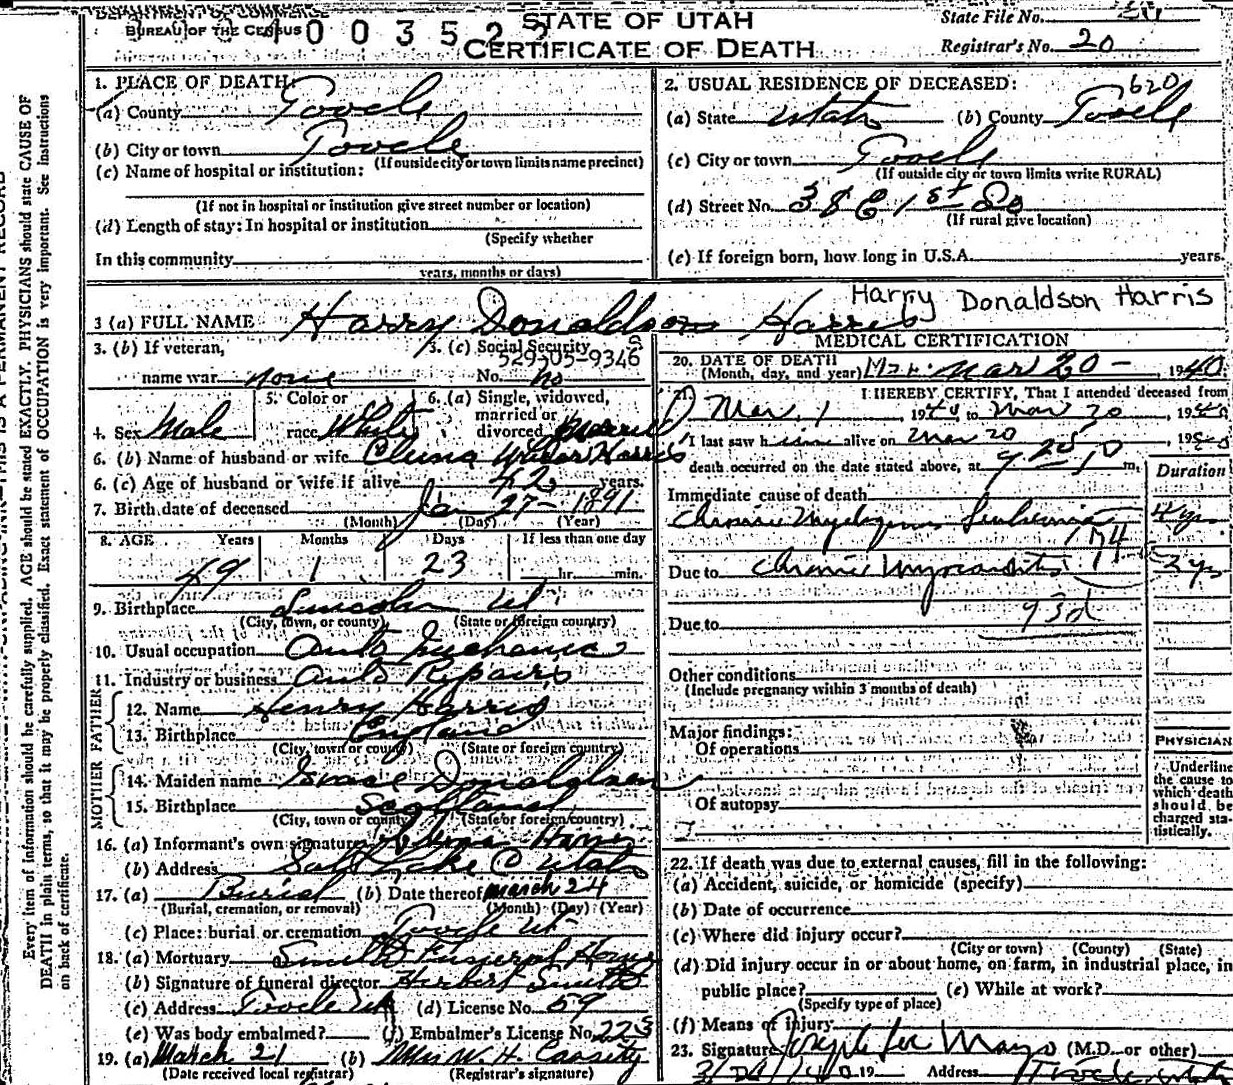 DEPARTMENT OF COMMERCE
BUREAU OF THE CENSUS
STATE OF UTAH
CERTIFICATE OF DEATH
State File No.
Registrar's No. 20
1. PLACE OF DEATH:
(a) County Tooele
(b) City or town Tooele
(If outside city or town limits name precinct)
(c) Name of hospital or institution:
(If not in hospital or institution give street number or location)
(d) Length of stay: In hospital or institution
(Specify whether
In this community
years, months or days)
2. USUAL RESIDENCE OF DECEASED:
620
(a) State Utah (b) County Tooele
(c) City or town Tooele
(If outside city or town limits write RURAL)
(d) Street No. 38 E 1st So
(If rural give location)
(e) If foreign born, how long in U.S.A. years.
3 (a) FULL NAME Harry Donaldson Harris
Harry Donaldson Harris
3. (b) If veteran,
name war none
3. (c) Social Security
529-05-9346
No. no
4. Sex Male
5. Color or
race White
6. (a) Single, widowed,
married or
divorced Married
6. (b) Name of husband or wife Harris
6. (c) Age of husband or wife if alive 42 years.
7. Birth date of deceased Jan 27 - 1891
(Month) (Day) (Year)
8. AGE Years Months Days If less than one day
49 1 23 hr. min.
9. Birthplace Lincoln Ut
(City, town, or county) (State or foreign country)
10. Usual occupation Auto Mechanic
11. Industry or business Auto Repairs
FATHER
12. Name Henry Harris
13. Birthplace England
(City, town or county) (State or foreign country)
MOTHER
14. Maiden name Grace Donaldson
15. Birthplace Scotland
(City, town or county) (State or foreign country)
16. (a) Informant's own signature Harris
(b) Address Salt Lake C Utah
17. (a) Burial (b) Date thereof March 24
(Burial, cremation, or removal) (Month) (Day) (Year)
(c) Place: burial or cremation Tooele Ut
18. (a) Mortuary Smith Funeral Home
(b) Signature of funeral director Herbert Smith
(c) Address Tooele Ut (d) License No. 59
(e) Was body embalmed? (f) Embalmer's License No. 223
19. (a) March 21 (b) Mrs W. H. Cassity
(Date received local registrar) (Registrar's signature)
MEDICAL CERTIFICATION
20. DATE OF DEATH
(Month, day, and year) Mar 20 - 1940
21. I HEREBY CERTIFY, That I attended deceased from
Mar. 1 1940 to Mar 20, 1940
I last saw him alive on Mar 20, 1940
death occurred on the date stated above, at m.
Duration
Immediate cause of death
Chronic Myelogenous Leukemia 4 yr
Due to Chronic Myocarditis
Due to 93d
Other conditions
(Include pregnancy within 3 months of death)
Major findings:
Of operations
Of autopsy
PHYSICIAN
Underline
the cause to
which death
should be
charged sta-
tistically.
22. If death was due to external causes, fill in the following:
(a) Accident, suicide, or homicide (specify)
(b) Date of occurrence
(c) Where did injury occur?
(City or town) (County) (State)
(d) Did injury occur in or about home, on farm, in industrial place, in
public place? (e) While at work?
(Specify type of place)
(f) Means of injury
23. Signature Joseph Lee Mayo (M.D. or other)
19 Address Tooele Utah
Every item of information should be carefully supplied. AGE should be stated EXACTLY. PHYSICIANS should state CAUSE OF
DEATH in plain terms, so that it may be properly classified. Exact statement of OCCUPATION is very important. See Instructions
on back of certificate.